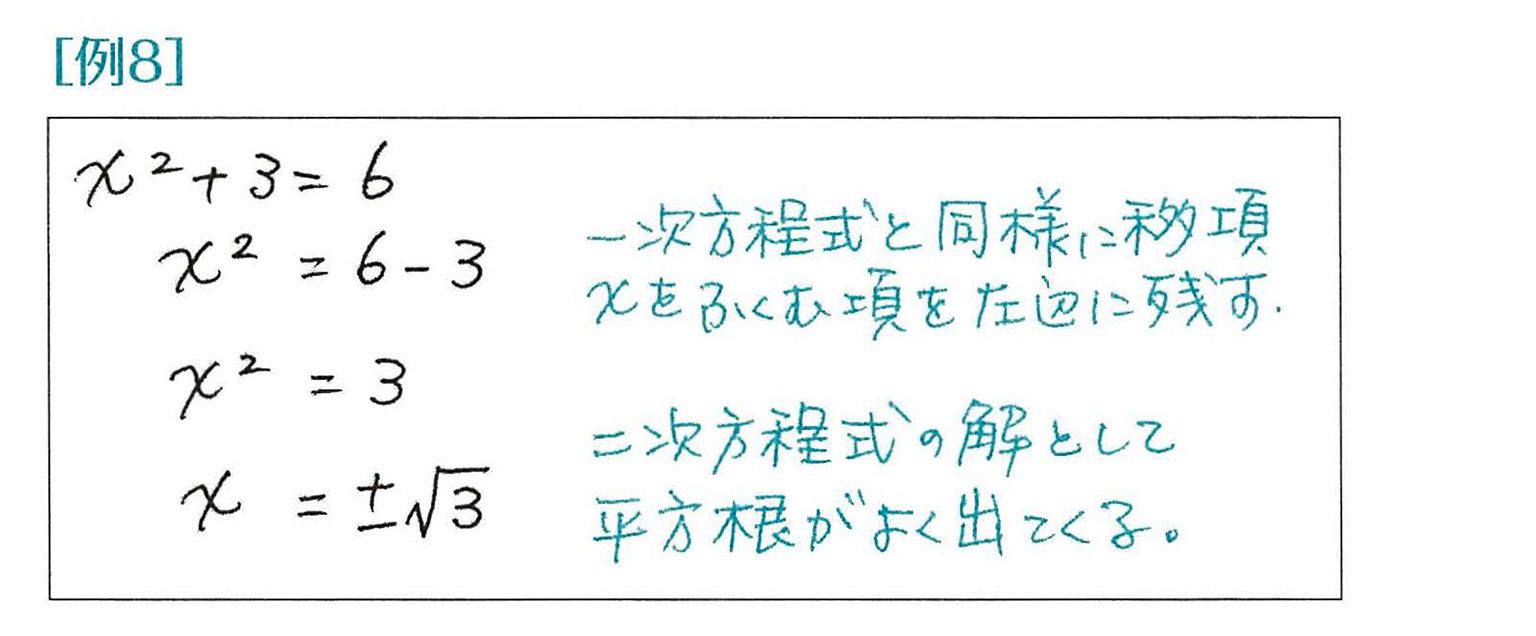 [例8]
x²+3=6
x² =6-3
一次方程式と同様に移項
xをふくむ項を左辺に残す.
x² =3
x =±√3
二次方程式の解として
平方根がよく出てくる。